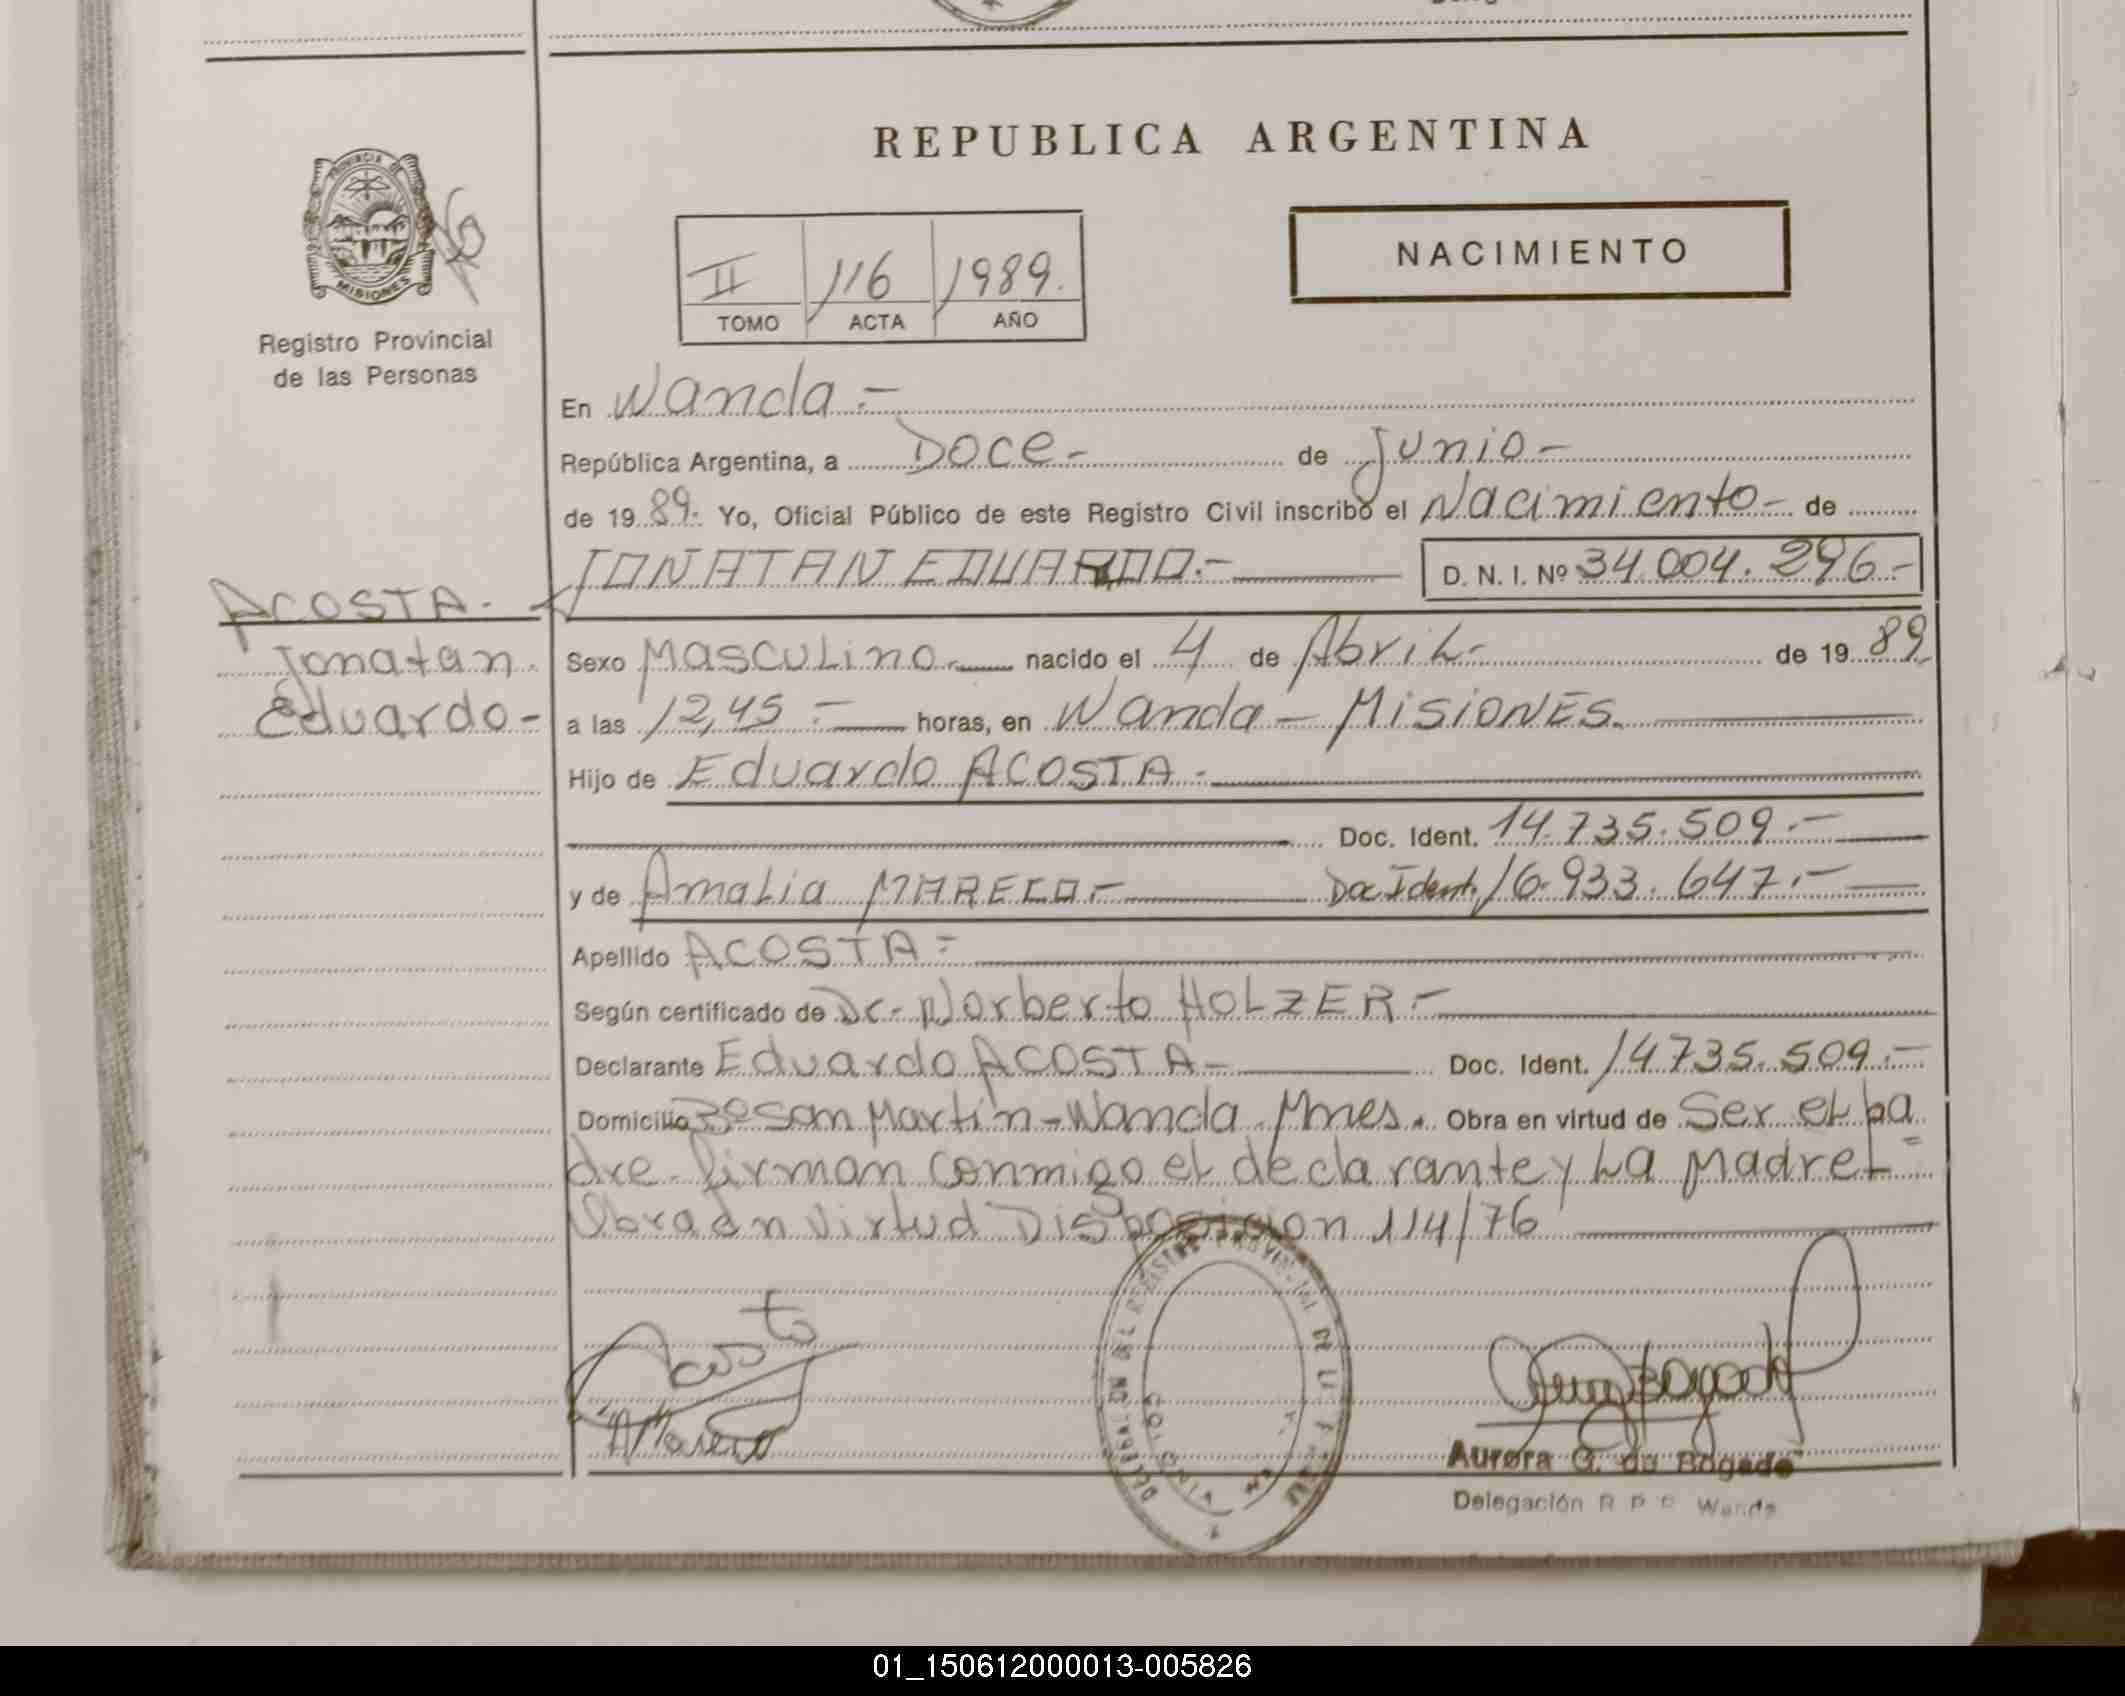 REPUBLICA ARGENTINA
PROVINCIA DE
MISIONES
Registro Provincial
de las Personas
NACIMIENTO
II 116 1989.
TOMO ACTA AÑO
En Wanda.-
República Argentina, a Doce- de Junio-
de 1989. Yo, Oficial Público de este Registro Civil inscribo el Nacimiento- de
JONATAN EDUARDO.- D. N. I. Nº 34.004.296.-
ACOSTA.-
Jonatan.
Eduardo-
Sexo Masculino.- nacido el 4 de Abril- de 1989.
a las 12,45.- horas, en Wanda - MISIONES.
Hijo de Eduardo ACOSTA.-
Doc. Ident. 14.735.509.-
y de Amalia MARECO.- Doc Ident. 16.933.647.-
Apellido ACOSTA-
Según certificado de Dr. Norberto HOLZER.-
Declarante Eduardo ACOSTA- Doc. Ident. 14735.509.-
Domicilio Bº San Martin-Wanda Mnes. Obra en virtud de Ser el pa
dre. firman conmigo el declarante y la Madre
Obra en virtud Disposicion 114/76
Acosta
AMareco
Aurora G. de Bogado
Delegación R P P Wanda
01_150612000013-005826